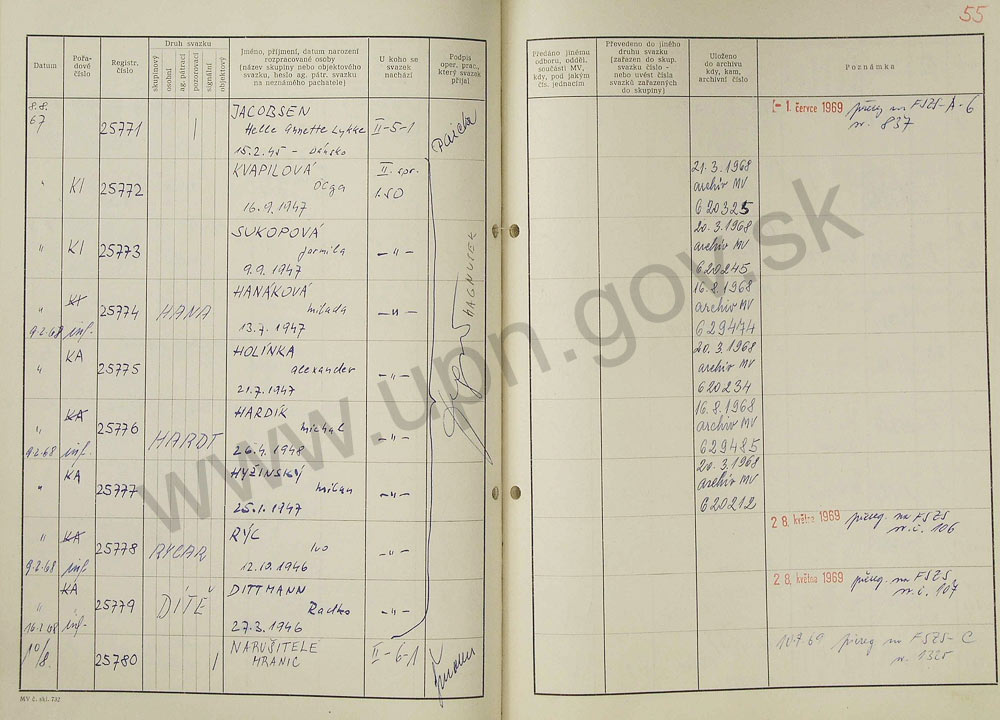 55
Datum
Pořa-
dové
číslo
Registr.
číslo
Druh svazku
skupinový
osobní
ag.-pátrací
pozorovací
signální
objektový
Jméno, příjmení, datum narození
rozpracované osoby
(název skupiny nebo objektového
svazku, heslo ag. pátr. svazku
na neznámého pachatele)
U koho se
svazek
nachází
Podpis
oper. prac.,
který svazek
přijal
Předáno jinému
odboru, odděl.
součásti MV,
kdy, pod jakým
čís. jednacím
Převedeno do jiného
druhu svazku
(zařazen do skup.
svazku číslo -
nebo uvést čísla
svazků zařazených
do skupiny)
Uloženo
do archivu
kdy, kam,
archivní číslo
Poznámka
8.8.
67
25771
|
JACOBSEN
Helle Annette Lykke
15.2.45 - Dánsko
II-5-1
- 1. července 1969 přereg na FSZS-A-6
nr. 837
"
KI
25772
KVAPILOVÁ
Olga
16.9.1947
II. spr.
1.SO
21.3.1968
archiv MV
620325
"
KI
25773
SUKOPOVÁ
Jarmila
9.9.1947
- " -
20.3.1968
archiv MV
620245
"
KI
9.2.68 inf.
25774
HANA
HANÁKOVÁ
Milada
13.7.1947
- " -
16.8.1968
archiv MV
629474
"
KA
25775
HOLÍNKA
Alexander
21.7.1947
- " -
20.3.1968
archiv MV
620234
"
KA
9.2.68 inf.
25776
HARDT
HARDIK
Michal
26.4.1948
- " -
16.8.1968
archiv MV
629485
"
KA
25777
HYŽINSKÝ
Milan
25.1.1947
- " -
20.3.1968
archiv MV
620212
MAGNUSEK
"
KA
9.2.68 inf
25778
RYCAR
RÝC
Ivo
12.10.1946
- " -
28. května 1969 přereg. na FSZS
nr. č. 106
"
KA
16.2.68 inf.
25779
DÍTĚ
DITTMANN
Radko
27.3.1946
- " -
28. května 1969 přereg. na FSZS
nr. č. 107
10/
8.
25780
|
NARUŠITELÉ
HRANIC
II-6-1
10.7.69 přereg na FSZS-C
n. 1325
MV č. skl. 732
www.upn.gov.sk